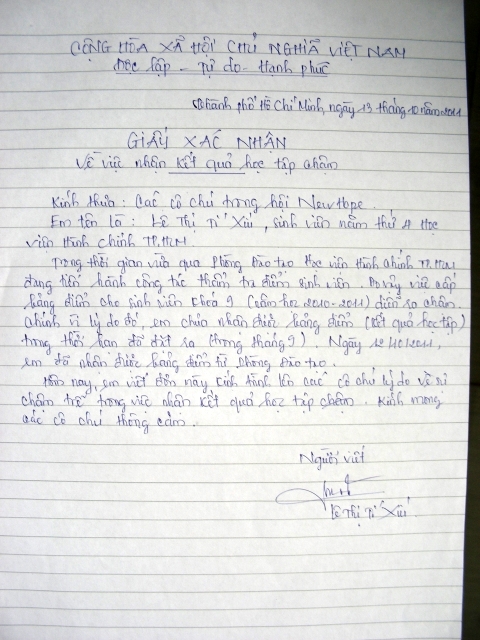 CỘNG HÒA XÃ HỘI CHỦ NGHĨA VIỆT NAM
Độc lập - Tự do - Hạnh phúc
Thành phố Hồ Chí Minh, ngày 13 tháng 10 năm 2011
GIẤY XÁC NHẬN
Về việc nhận kết quả học tập chậm
Kính thưa : Các cô chú trong hội New Hope.
Em tên là : Lê Thị Tí Xíu, sinh viên năm thứ 4 Học
viện Hành Chính TP.HCM.
Trong thời gian vừa qua Phòng Đào tạo Học viện Hành Chính TP.HCM
đang tiến hành công tác thẩm tra điểm sinh viên. Do vậy việc cấp
bảng điểm cho sinh viên khoá 9 (năm học 2010-2011) diễn ra chậm.
Chính vì lý do đó, em chưa nhận được bảng điểm (kết quả học tập)
trong thời hạn đã đặt ra (trong tháng 9). Ngày 12/10/2011,
em đã nhận được bảng điểm từ phòng Đào tạo.
Hôm nay, em viết đơn này kính trình lên các cô chú lý do về sự
chậm trễ trong việc nhận kết quả học tập chậm. Kính mong
các cô chú thông cảm.
Người viết
Lê Thị Tí Xíu